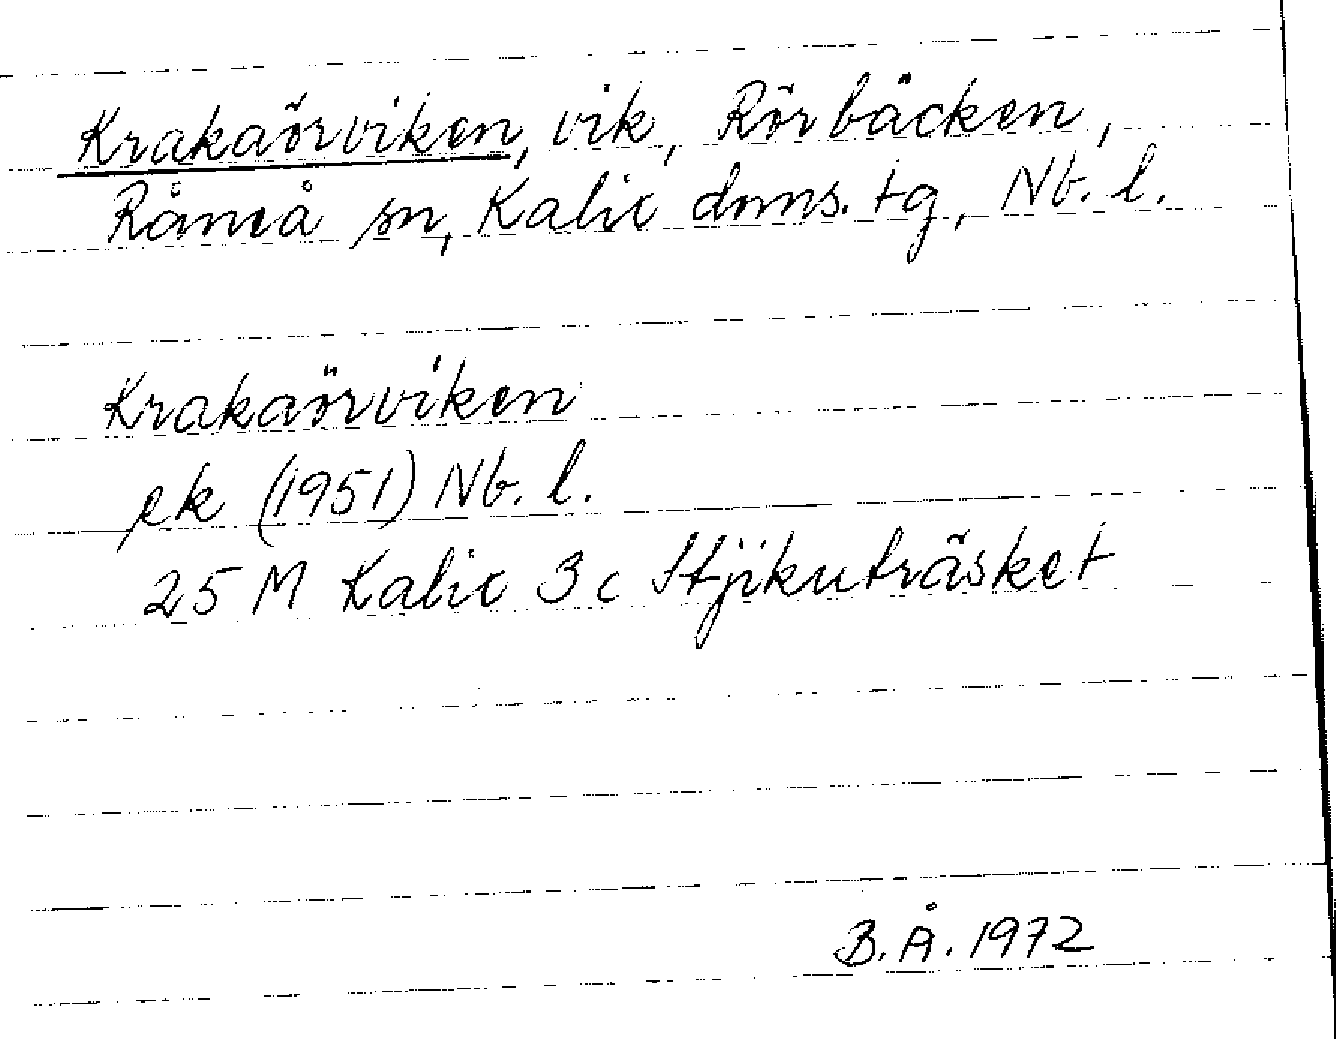 Krakaörviken, vik, Rörbäcken,
Råneå sn, Kalix dms. tg, Nb. l.
Krakaörviken
ek (1951) Nb. l.
25 M Kalix 3 c Stjikuträsket
B.Å. 1972